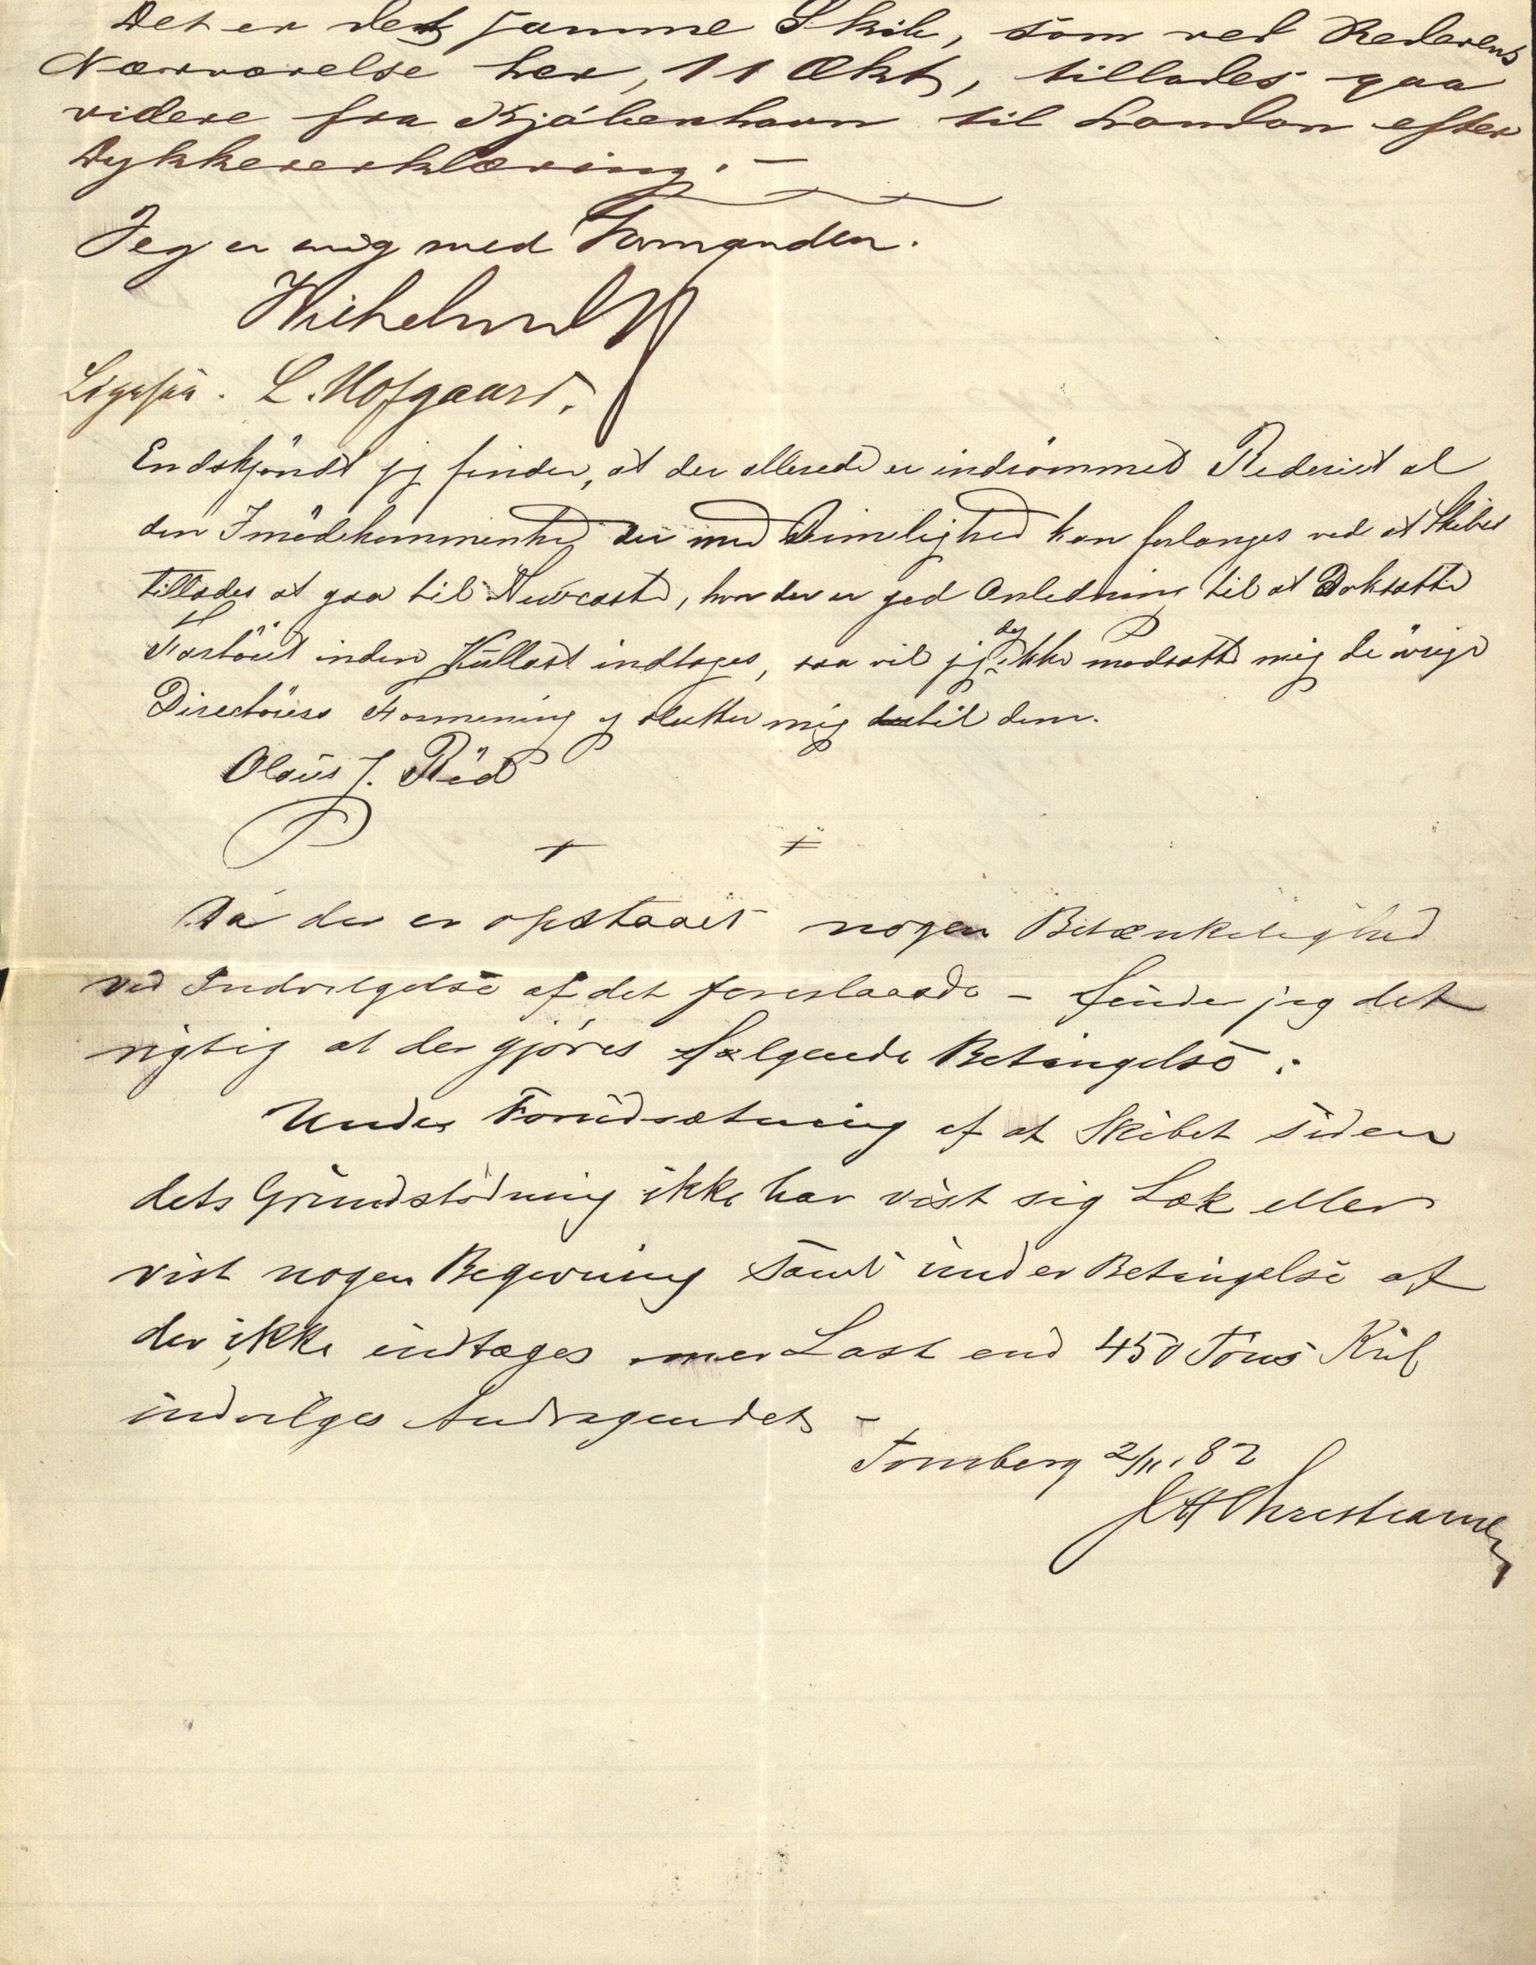 Det er det samme Skib, som ved Rederens
Nærværelse her, 11 Okt, tillodes gaa
videre fra Kjøbenhavn til London efter
Dykkererklæring. –
Jeg er enig med Formanden.
Wilhelmsen
Ligesaa. L. Hofgaard.
Endskjøndt jeg finder, at der allerede er indrømmet Rederiet al
den Imødekommenhed der med Rimelighed kan forlanges ved at Skibet
tillades at gaa til Newcastle, hvor der er god Anledning til at Doksætte
Fartøiet inden Kullast indtages, saa vil jeg dog ikke modsætte mig de øvrige
Directørers Formening og slutter mig til dem.
Olaus J. Rød
Da der er opstaaet nogen Betænkelighed
ved Indvilgelse af det foreslaaede – finder jeg det
rigtig at der gjøres følgende Betingelse:
Under Forudsætning af at Skibet siden
dets Grundstødning ikke har vist sig Læk eller
vist nogen Bøgning samt under Betingelse af
der ikke indtages mer Last end 450 Tons Kul
indvilges Andragendet –
Tønsberg 2/11 . 82
J H Christiansen